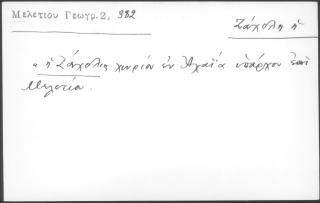 Μελετίου Γεωγρ. 2, 382
Ζάχολη ἡ
"ἡ Ζάχολη χωρίον ἐν Ἀχαΐᾳ ὑπάρχον ἐπὶ
Μελετίου.